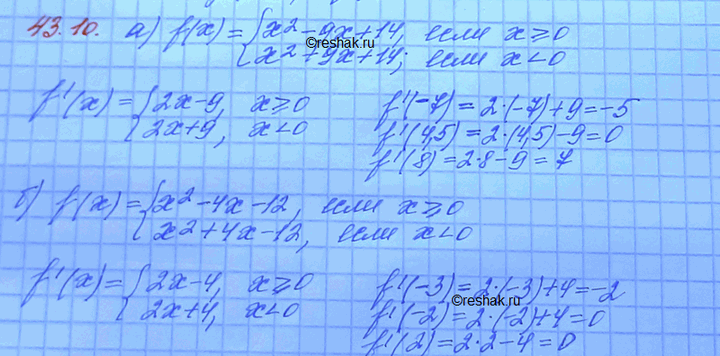 43.10. а) f(x) = { x² - 9x + 14, если x ≥ 0
x² + 9x + 14, если x < 0
©reshak.ru
f'(x) = { 2x - 9, x ≥ 0
2x + 9, x < 0
f'(-7) = 2·(-7) + 9 = -5
f'(4,5) = 2·(4,5) - 9 = 0
f'(8) = 2·8 - 9 = 7
б) f(x) = { x² - 4x - 12, если x ≥ 0
x² + 4x - 12, если x < 0
f'(x) = { 2x - 4, x ≥ 0
2x + 4, x < 0
f'(-3) = 2·(-3) + 4 = -2
©reshak.ru
f'(-2) = 2·(-2) + 4 = 0
f'(2) = 2·2 - 4 = 0